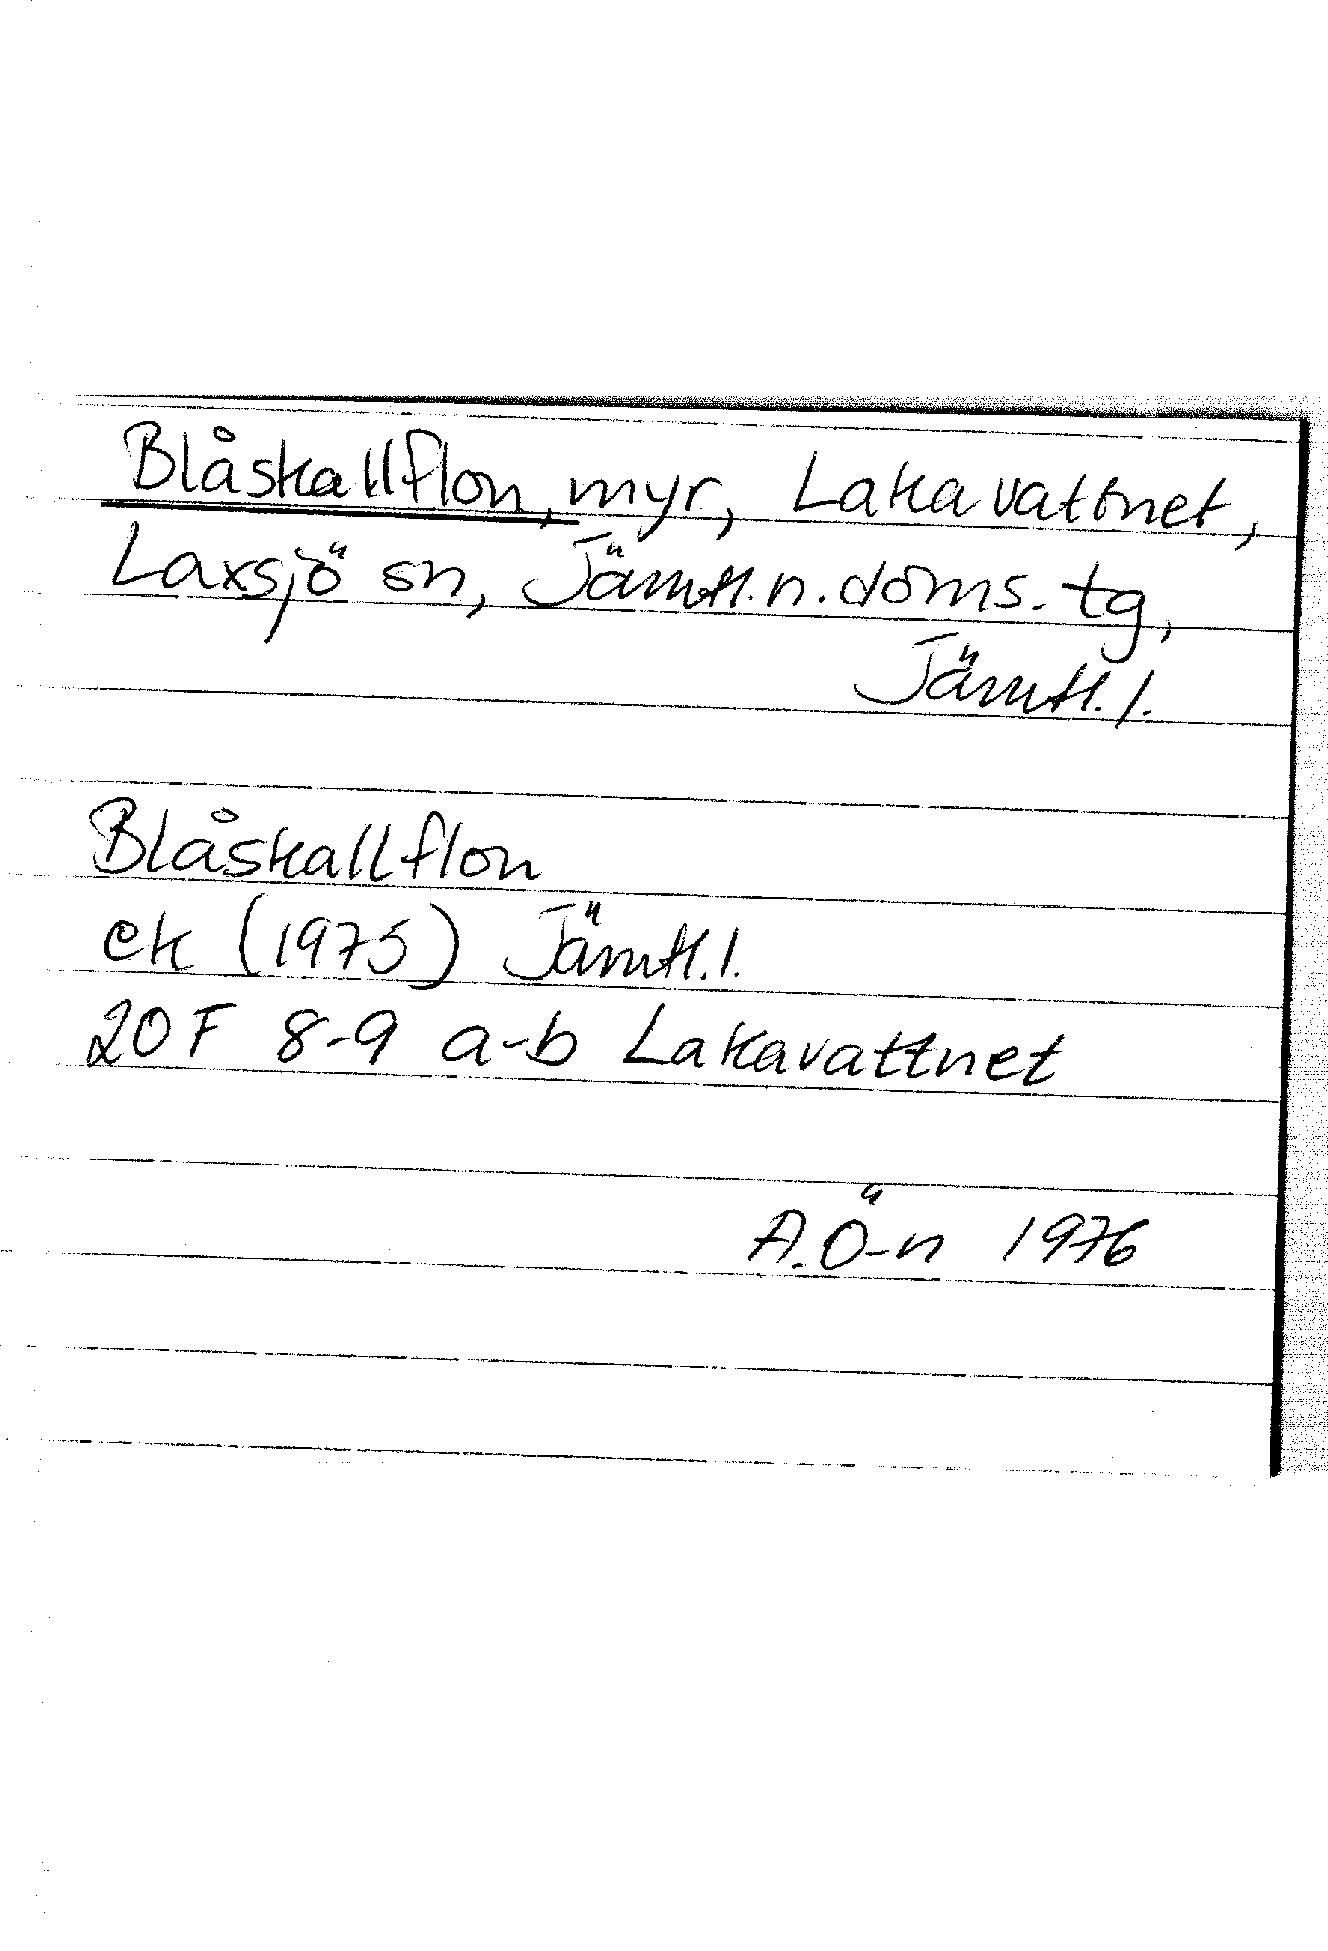 Blåskallflon, myr, Lakavattnet,
Laxsjö sn, Jämtl.n.doms.tg,
Jämtl.l.
Blåskallflon
ek (1975) Jämtl.l.
20F 8-9 a-b Lakavattnet
A.Ö-n 1976